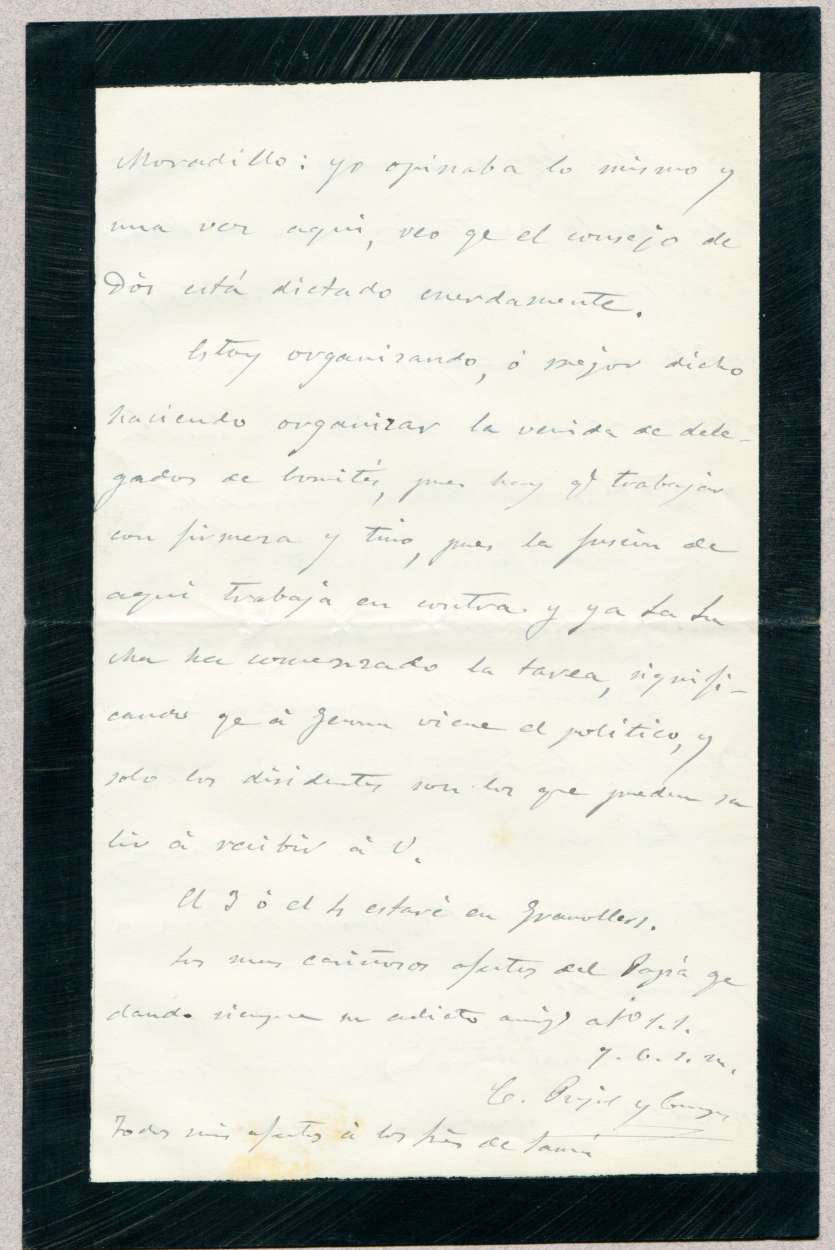 Moradillo: yo opinaba lo mismo y
una vez aqui, veo qe el consejo de
Dòs está dictado cuerdamente.
Estoy organizando, ó mejor dicho
haciendo organizar la venida de dele-
gados de Comités, pues hay qe trabajar
con firmeza y tino, pues la fusion de
aqui trabaja en contra y ya La Lu
cha ha comenzado la tarea, signifi-
cando qe á Gerona viene el politico, y
solo los disidentes son los que pueden sa
lir á recibir á V.
El 3 ó el 4 estaré en Granollers.
Los mas cariñosos afectos del Papá qe
dando siempre su adicto amigo afmo s.s.
q. b. s. m.
C. Pujol y Camps
Todos mis afectos á los de